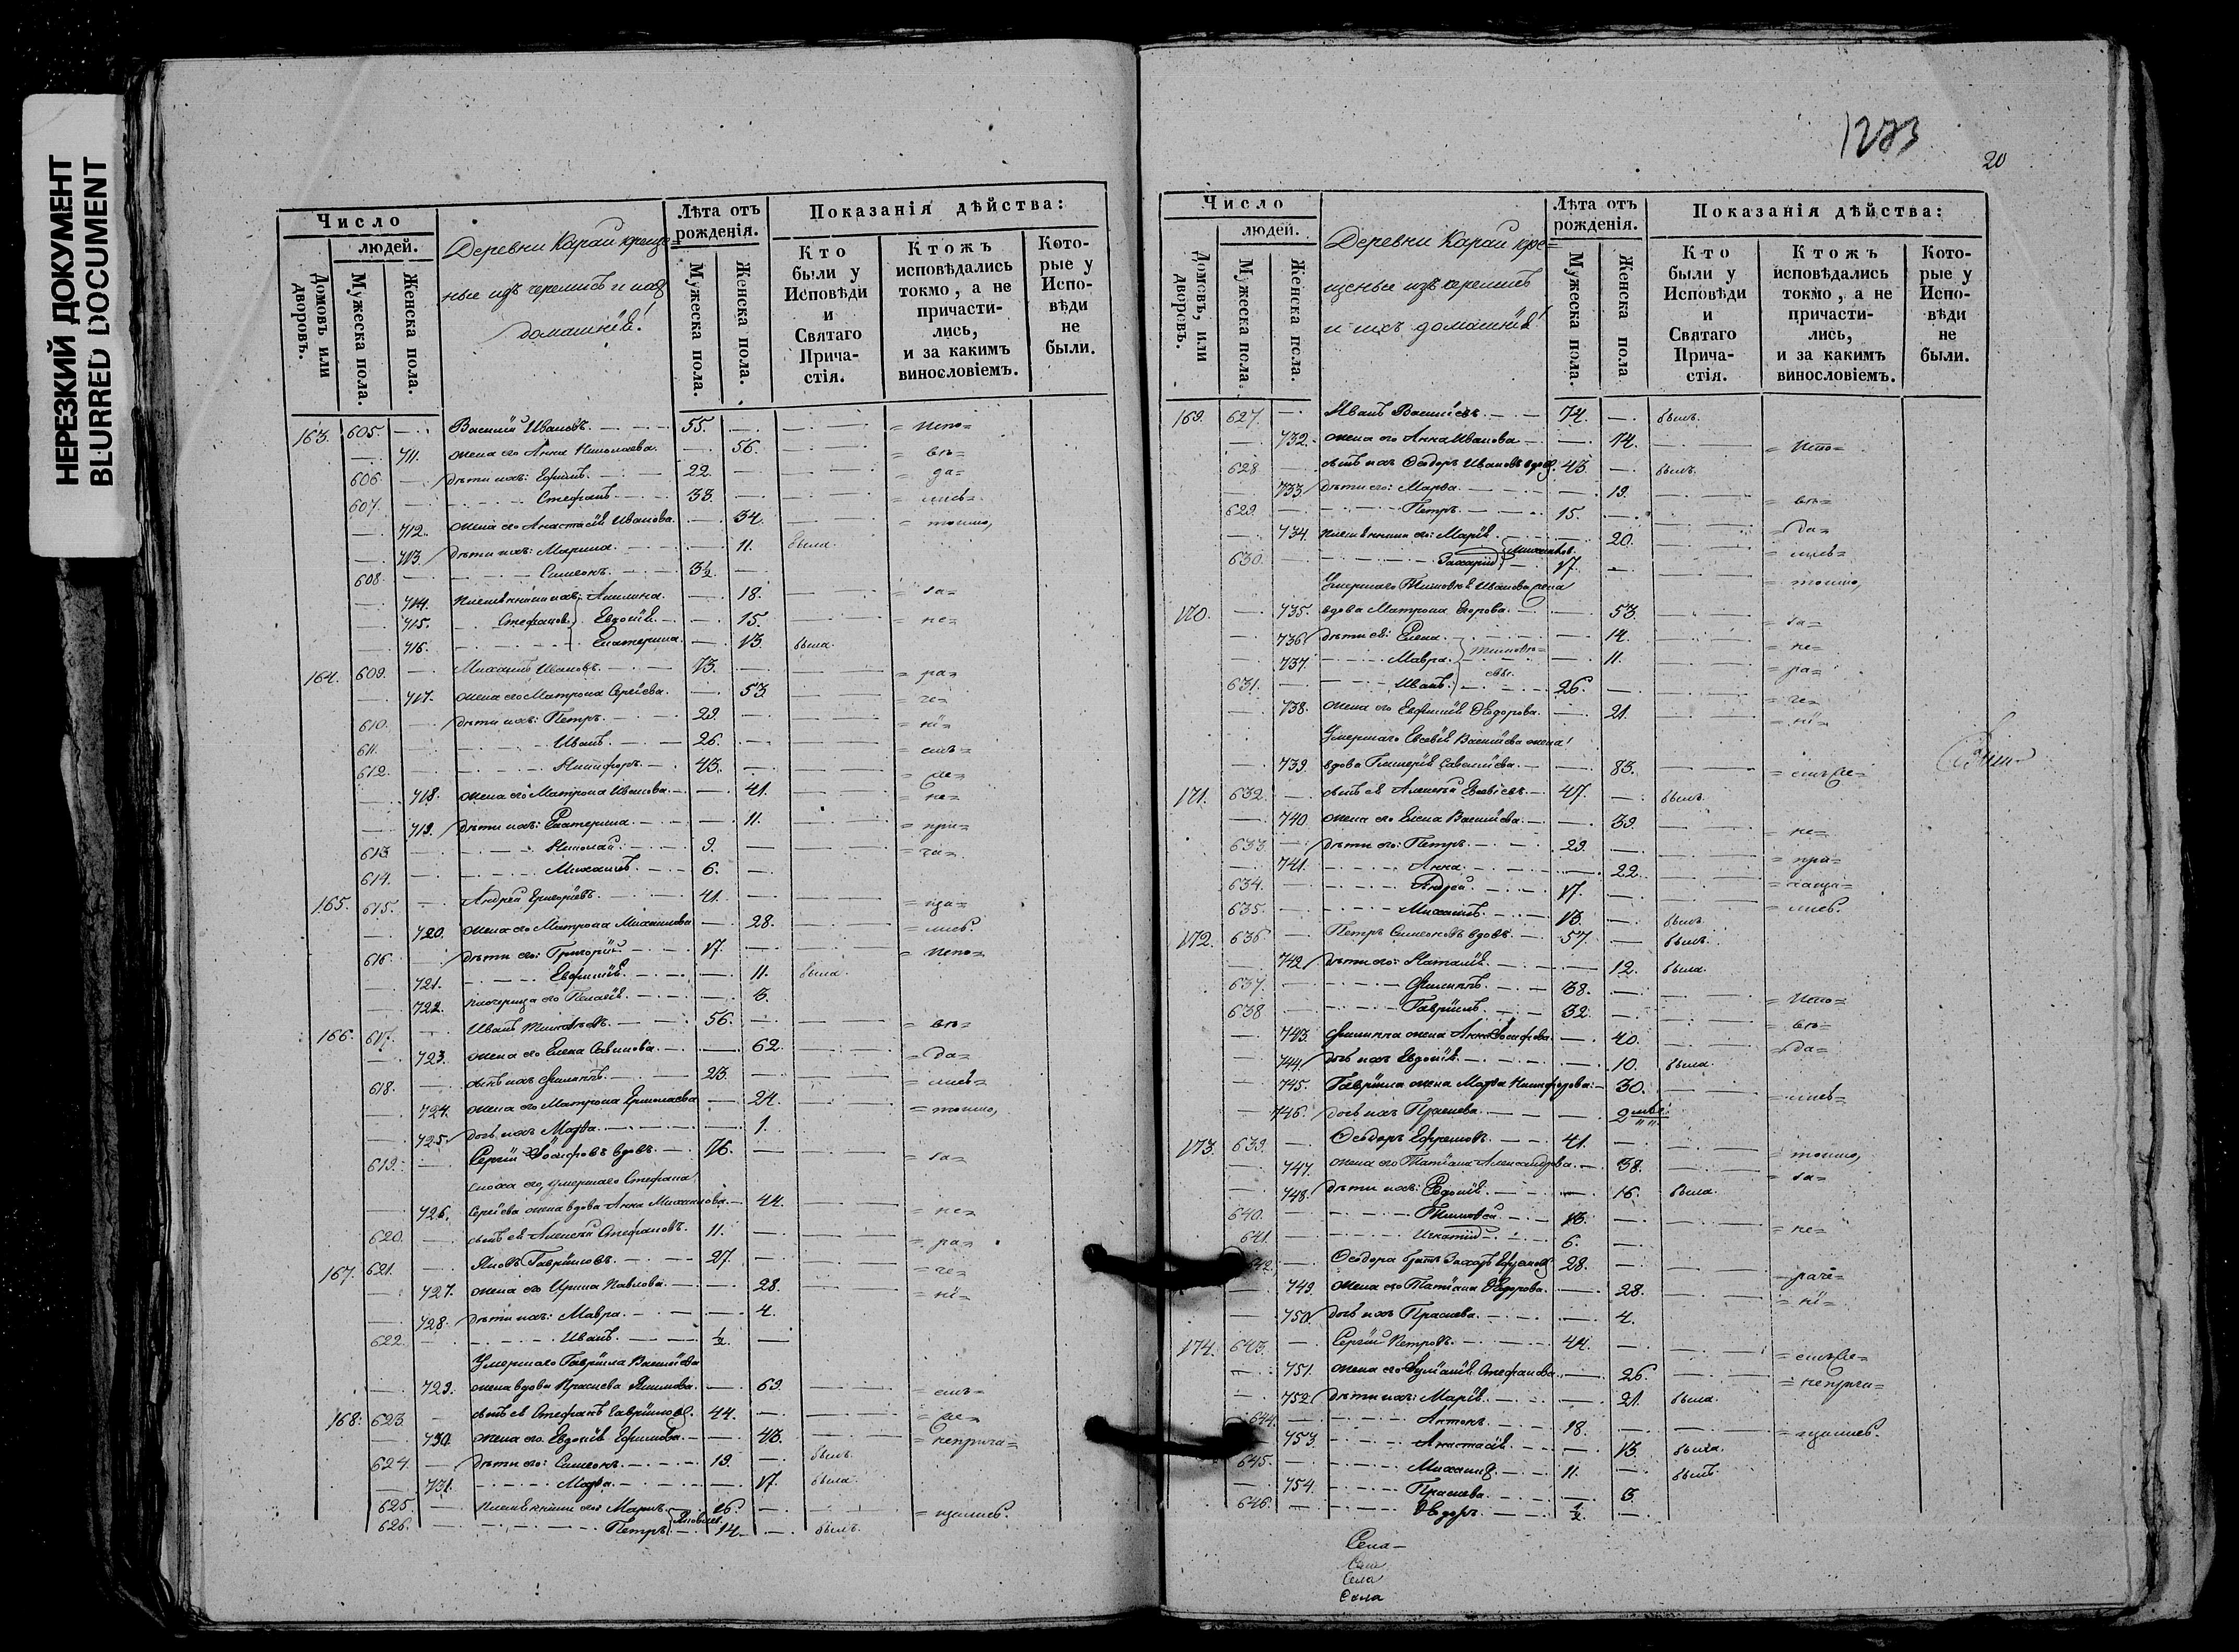 НЕРЕЗКИЙ ДОКУМЕНТ
BLURRED DOCUMENT
Число
людей.
Домовъ или дворовъ.
Мужеска пола.
Женска пола.
Деревни Караи креще=
ные изъ черемисъ и
домашнiи!
Лѣта отъ рожденія.
Мужеска пола.
Женска пола.
Показанія дѣйства:
Кто были у Исповѣди и Святаго Прича-стія.
Ктожъ исповѣдались токмо, а не причасти-лись, и за какимъ винословіемъ.
Кото-рые у Испо-вѣди не были.
163. 605. Василій Ивановъ. 55. = испо=
711. жена его Анна Николаева. 56. = вѣ=
606. дѣти ихъ: Ефимъ. 22. = да=
607. Стефанъ. 38. = лись=
712. жена его Анастасія Иванова. 34. = токмо,
713. дѣти ихъ: Марина. 11. была.
608. Симеонъ. 3½.
714. племянницы ихъ: Акилина. 18. = за=
715. Стефанов. Евдокія. 15. = не=
716. Екатерина. 13. была.
164. 609. Михаилъ Ивановъ. 73. = ра=
717. жена его Матрона Сергіева. 53. = че=
610. дѣти ихъ: Петръ. 29. = ні=
611. Иванъ. 26. = емъ=
612. Никифоръ. 43. = же=
718. жена его Матрона Иванова. 41. = не=
719. дѣти ихъ: Екатерина. 11. = при=
613. Николай. 9. = ча=
614. Михаилъ. 6.
165. 615. Андрей Григорьевъ. 41. = ща=
720. жена его Матрона Михайлова 28. = лись.
616. дѣти его: Григорій. 17. = испо=
721. Евфимія. 11. была.
722. падчерица его Пелагія. 3.
166. 617. Иванъ Тимоѳеевъ. 56. = вѣ=
723. жена его Елена Савинова. 62. = да=
618. сынъ ихъ Филиппъ. 23. = лись=
724. жена его Матрона Ермолаева 24. = токмо,
725. дочь ихъ Марѳа. 1.
619. Сергій Іосифовъ вдовъ. 76. = за=
сноха его, умершаго Стефана
726. Сергіева жена вдова Анна Михайлова. 44. = не=
620. сынъ ея Алексѣй Стефановъ. 11. = ра=
167. 621. Яковъ Гавріиловъ. 27. = че=
727. жена его Ирина Павлова. 28. = ні=
728. дѣти ихъ: Мавра. 4.
622. Иванъ. ½.
Умершаго Гавріила Василіева
729. жена вдова Прасковья Якимова. 69. = емъ=
168. 623. сынъ ея Стефанъ Гавріиловъ. 44. = же=
730. жена его Евдокія Ефимова. 43. = неприча=
624. дѣти его: Симеонъ. 19. былъ.
731. Марѳа. 17. была.
625. племянники его: Маркъ 26. = щались.
626. Петръ Яковлев. 14. былъ.
1273
20
Число
людей.
Домовъ, или дворовъ.
Мужеска пола.
Женска пола.
Деревни Караи кре=
щеные изъ черемисъ
и ихъ домашнiи!
Лѣта отъ рожденія.
Мужеска пола.
Женска пола
Показанія дѣйства:
Кто были у Исповѣди и Святаго Прича-стія.
Ктожъ исповѣдались токмо, а не причасти-лись, и за какимъ винословіемъ.
Кото-рые у Испо-вѣди не были.
169. 627. Иванъ Василіевъ. 74. былъ.
732. жена его Анна Иванова 74. = испо=
628. сынъ ихъ Ѳеодоръ Ивановъ вдов. 43. былъ.
733. дѣти его: Марѳа. 19. = вѣ=
629. Петръ. 15.
734. племянники его: Марія. 20. = да=
630. Захарій Михайлов. 17. = лись=
Умершаго Тимоѳея Иванова жена = токмо,
170. 735. вдова Матрона Егорова. 53. = за=
736. дѣти ея: Елена. 14. = не=
737. Мавра. Тимоѳее= 11. = ра=
631. Иванъ. вы. 26. = че=
738. жена его Евфимія Ѳеодорова. 21. = ні=
Умершаго Евсевія Василіева жена!
739. вдова Гликерія Савеліева. 83. = емъже=
171. 632. сынъ ея Алексѣй Евсевіевъ. 47. былъ.
740. жена его Елена Василіева. 39. = не=
633. дѣти его: Петръ. 29. = при=
741. Анна. 22.
634. Андрей. 17. = чаща=
635. Михаилъ. 13. былъ. = лись.
172. 636. Петръ Симеоновъ вдовъ. 57. былъ.
742. дѣти его: Наталія. 12. была.
637. Филиппъ. 38. = испо=
638. Гавріилъ. 32. = вѣ=
743. Филиппа жена Анна Іосифова. 40. = да=
744. дочь ихъ Евдокія. 10. была.
745. Гавріила жена Марѳа Никифорова. 30. = лись=
746. дочь ихъ Прасковья. 2
173. 639. Ѳеодоръ Ефремовъ. 41. = токмо,
747. жена его Татіана Александрова. 38. = за=
748. дѣти ихъ: Евдокія. 16. была.
640. Тимоѳей. 13. = не=
641. Игнатій. 6.
642. Ѳеодора братъ Захаръ Ефремовъ 28. = раче=
749. жена его Татіана Ѳеодорова. 28. = ні=
750. дочь ихъ Прасковья. 4.
174. 643. Сергій Петровъ. 44. = емъже=
751. жена его Іуліанія Стефанова. 26. = неприча=
752. дѣти ихъ: Марія. 21. была.
644. Антонъ. 18. = щались.
753. Анастасія. 13. была.
645. Михаилъ. 11. былъ.
754. Прасковья. 3.
646. Ѳеодоръ. ½.
Села
Села
Села
Села